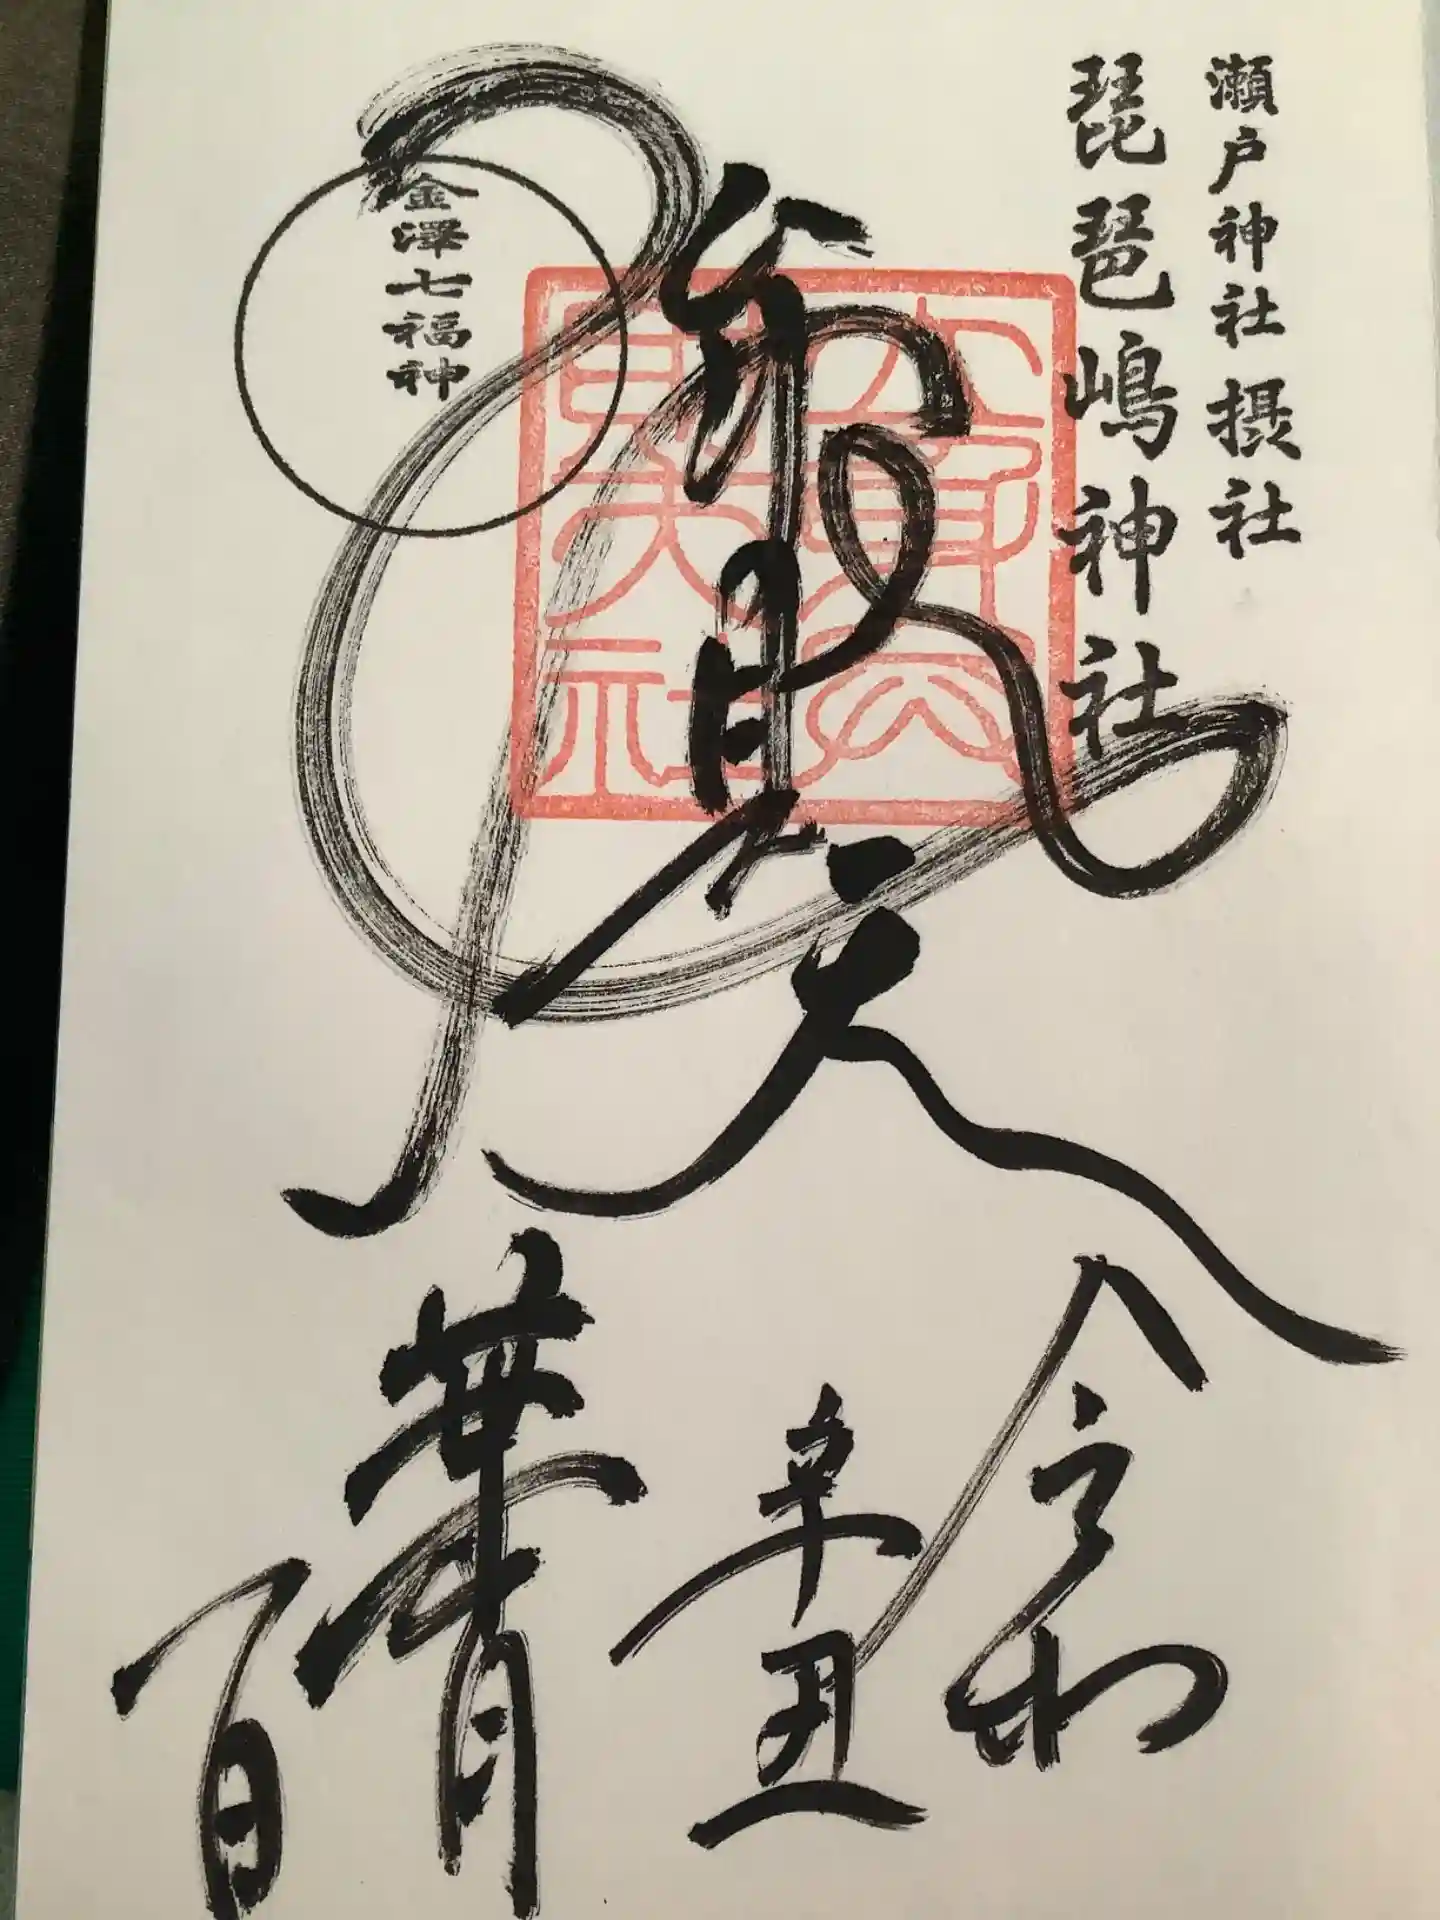 瀬戸神社摂社
琵琶嶋神社
弁財天
金澤七福神
令和
辛丑